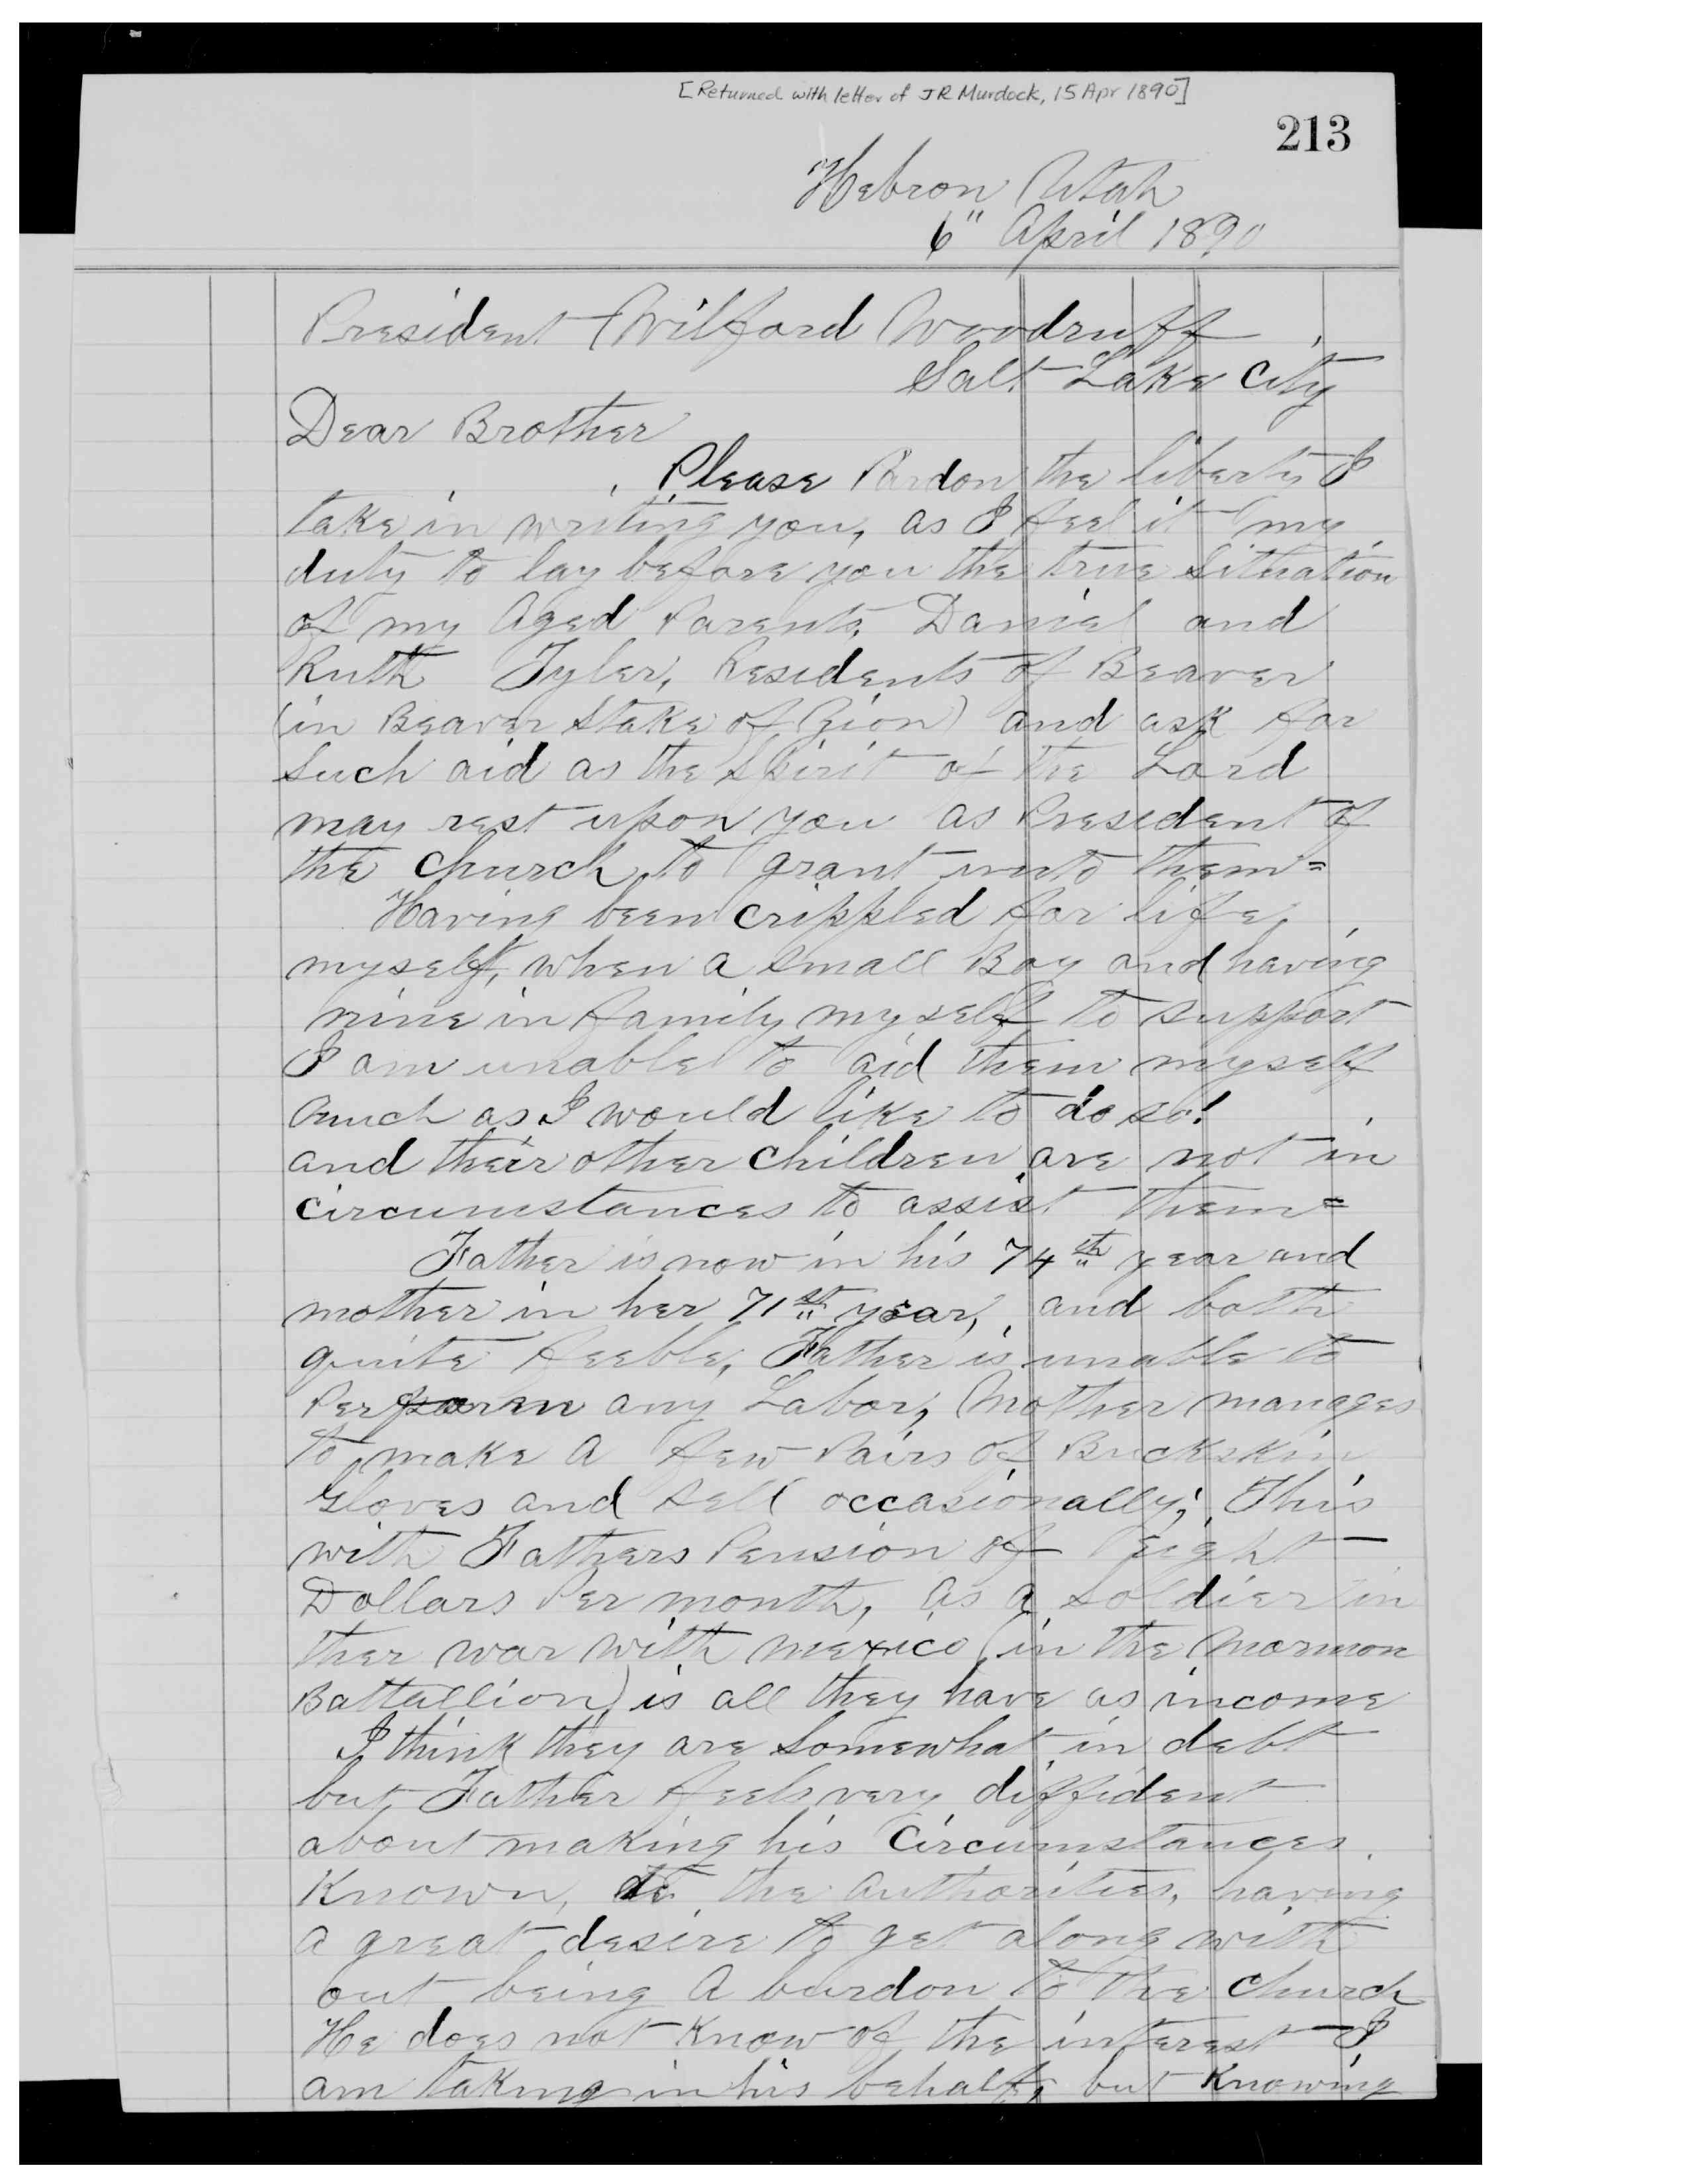 [Returned with letter of JR Murdock, 15 Apr 1890]
213
Hebron Utah
6" April 1890
President Wilford Woodruff
Salt Lake City
Dear Brother
Please Pardon the liberty I
take in writing you, as I feel it my
duty to lay before you the true Situation
of my Aged Parents, Daniel and
Ruth Tyler, Residents of Beaver
(in Beaver Stake of Zion) and ask for
Such aid as the Spirit of the Lord
may rest upon you as President of
the Church to grant unto them=
Having been crippled for life,
myself, when a Small Boy and having
nine in family myself to support
I am unable to aid them myself
much as I would like to do so!
and their other children are not in
circumstances to assist them=
Father is now in his 74th year and
mother in her 71st year, and both
quite feeble, Father is unable to
Perform any Labor, Mother manages
to make a few Pairs of Buckskin
Gloves and sell occasionally; This
with Fathers Pension of Eight
Dollars Per month, as a Soldier in
ther war with Mexico (in the Mormon
Battallion) is all they have as income
I think they are Somewhat in debt
but Father feels very diffident
about making his Circumstances
Known, to the Authorities, having
a great desire to get along with
out being a burdon to the Church
He does not Know of the interest I
am taking in his behalf, but Knowing